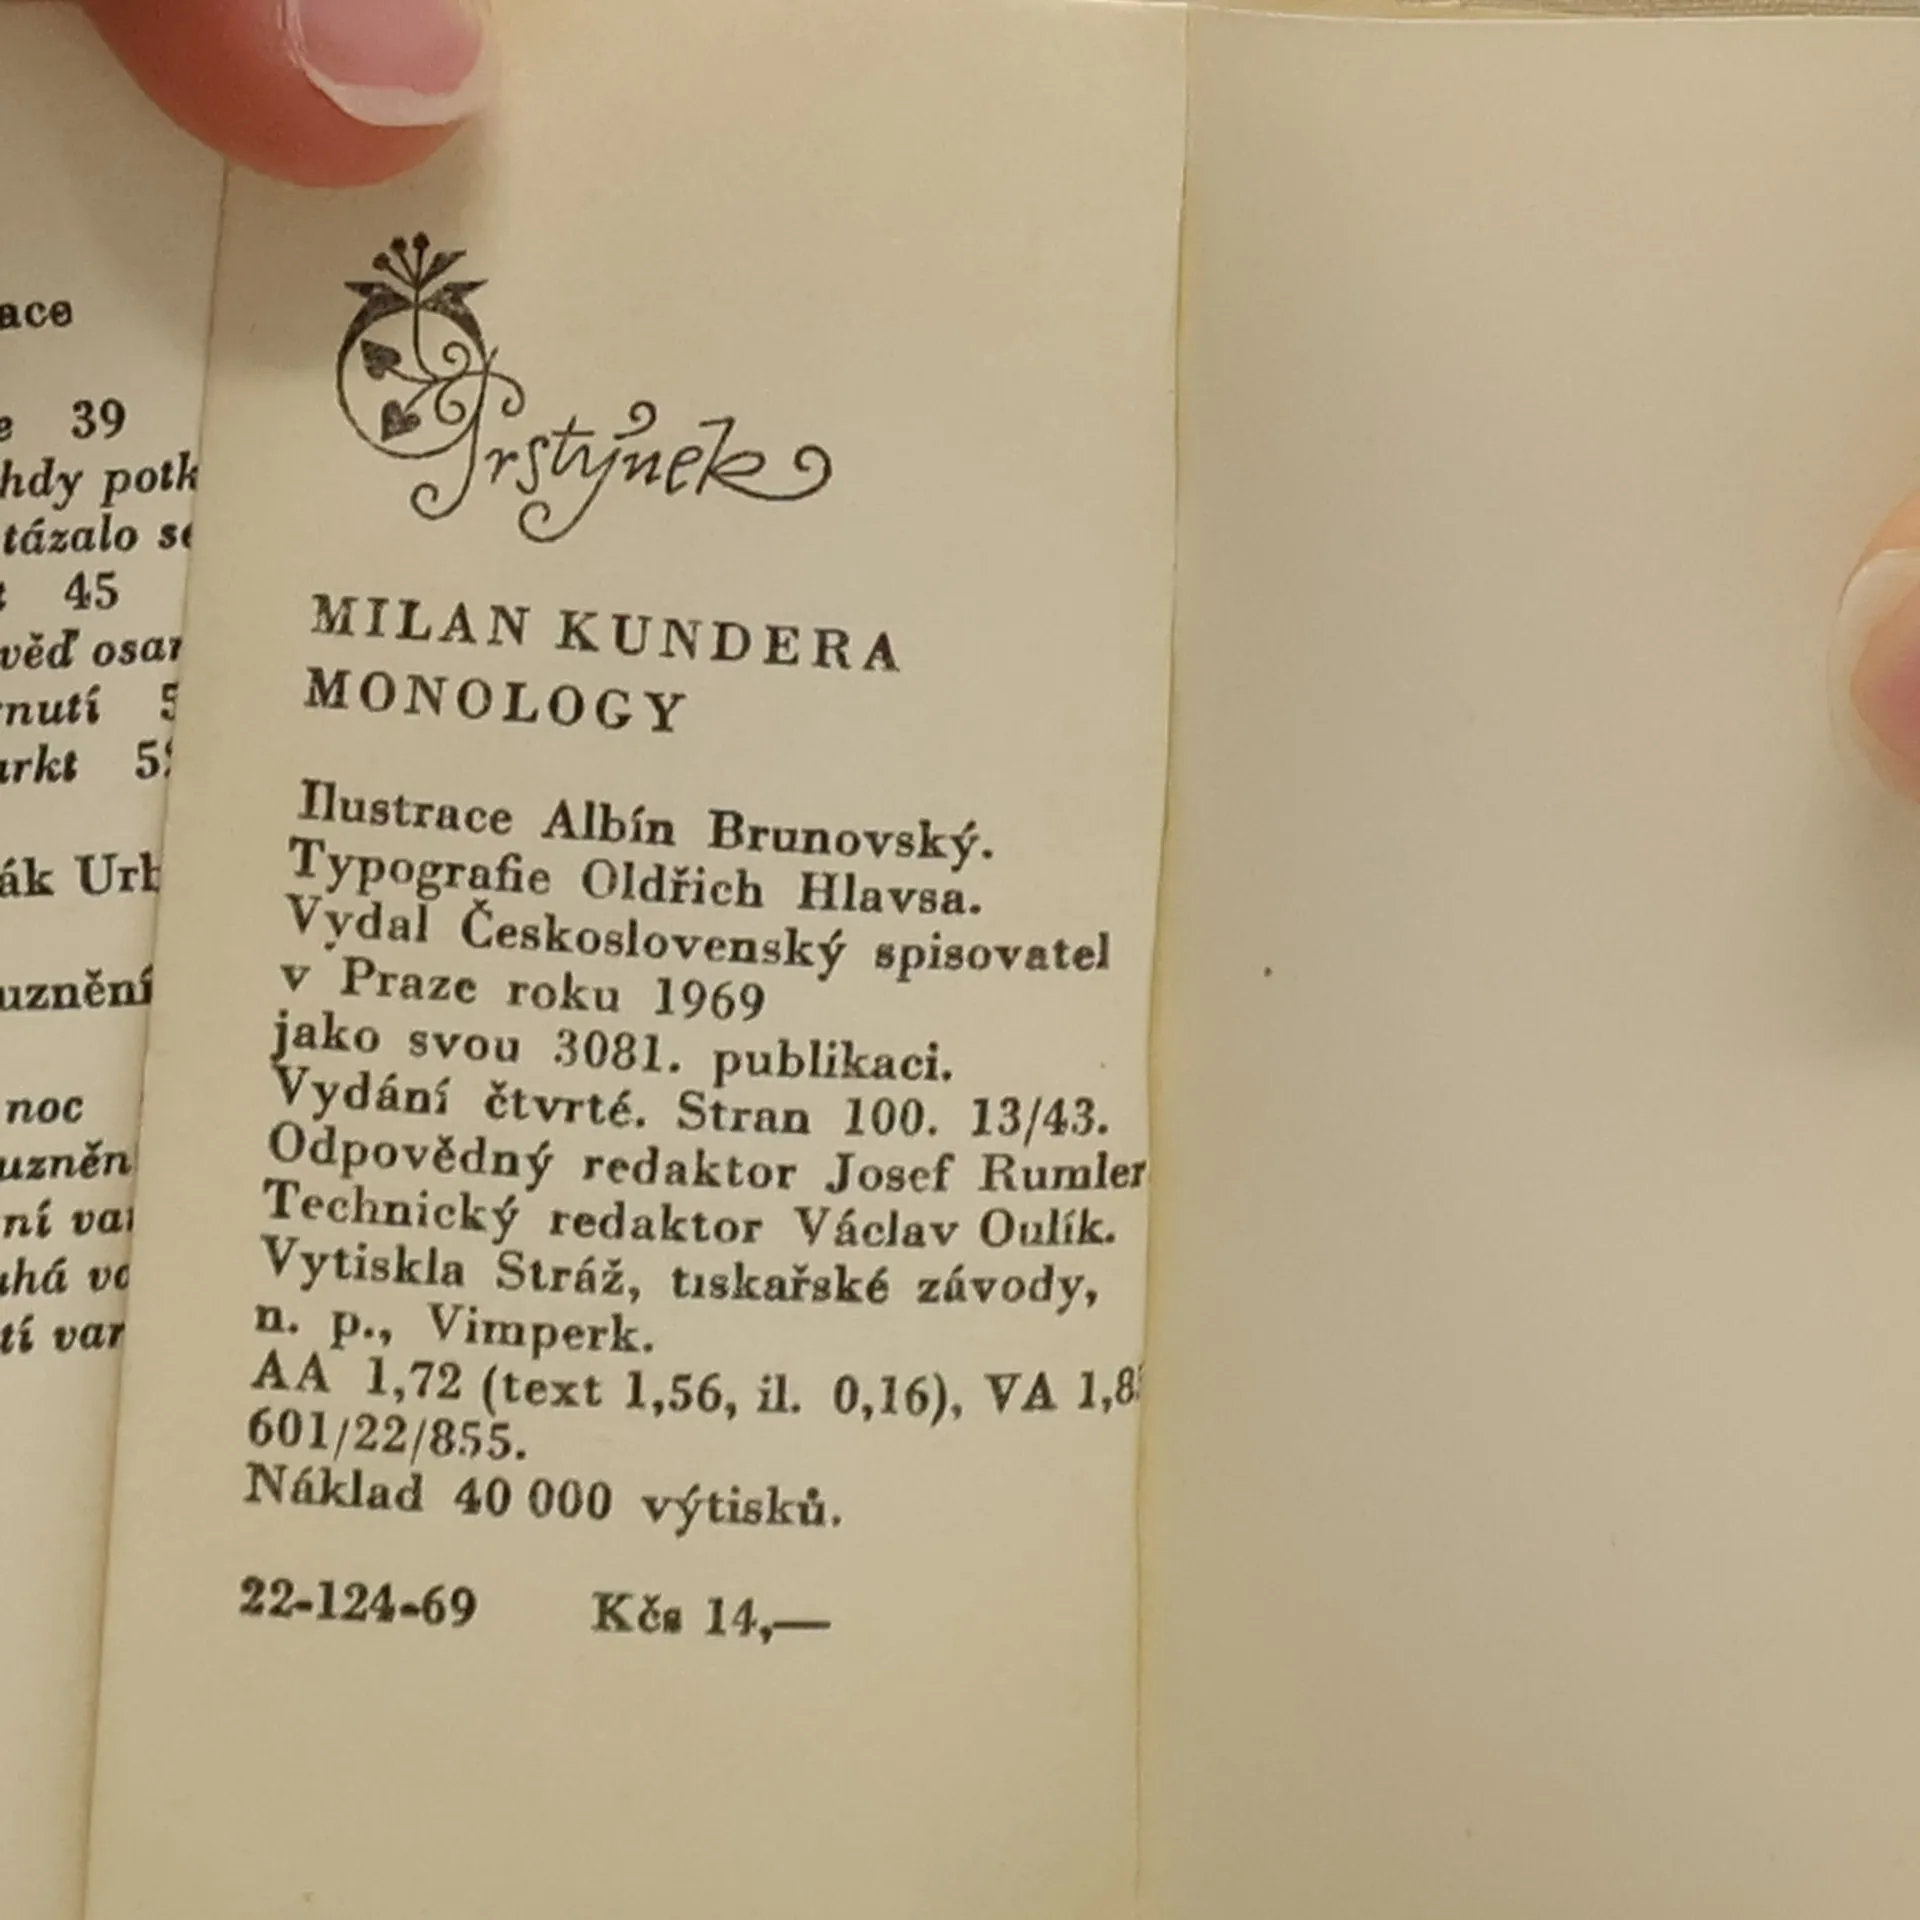 ace
e 39
hdy potk
tázalo se
45
věď osar
nutí 5
arkt 5
ák Urb
uznění
noc
uzněn
ní var
uhá vo
tí var
Prstýnek
MILAN KUNDERA
MONOLOGY
Ilustrace Albín Brunovský.
Typografie Oldřich Hlavsa.
Vydal Československý spisovatel
v Praze roku 1969
jako svou 3081. publikaci.
Vydání čtvrté. Stran 100. 13/43.
Odpovědný redaktor Josef Rumler
Technický redaktor Václav Oulík.
Vytiskla Stráž, tiskařské závody,
n. p., Vimperk.
AA 1,72 (text 1,56, il. 0,16), VA 1,8
601/22/855.
Náklad 40 000 výtisků.
22-124-69 Kčs 14,—